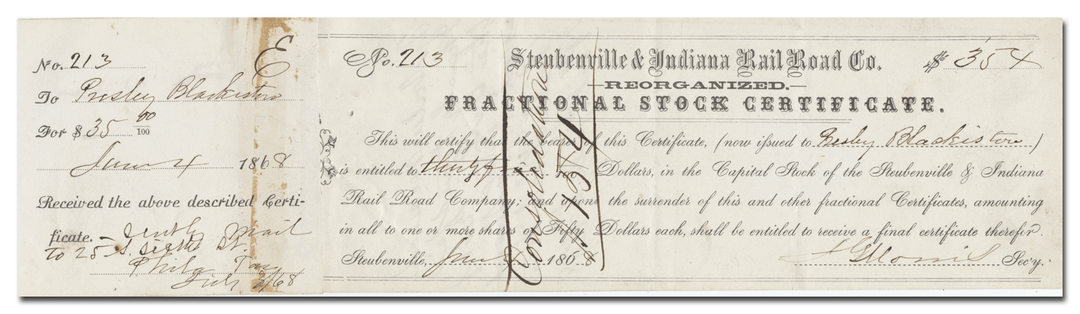 No. 213
E
To Presley Blackiston
For $ 35 00/100
June 4 1868
Received the above described Certi-
ficate. - sent by mail
to 25 S. Eighth St.
Phila
July 2/68
No. 213 Steubenville & Indiana Rail Road Co. $ 35
REORGANIZED.
FRACTIONAL STOCK CERTIFICATE.
This will certify that the bearer of this Certificate, (now issued to Presley Blackiston)
is entitled to thirty five Dollars, in the Capital Stock of the Steubenville & Indiana
Rail Road Company; and upon the surrender of this and other fractional Certificates, amounting
in all to one or more shares of Fifty Dollars each, shall be entitled to receive a final certificate therefor.
Steubenville, June 1868 Sec'y.
Consolidation